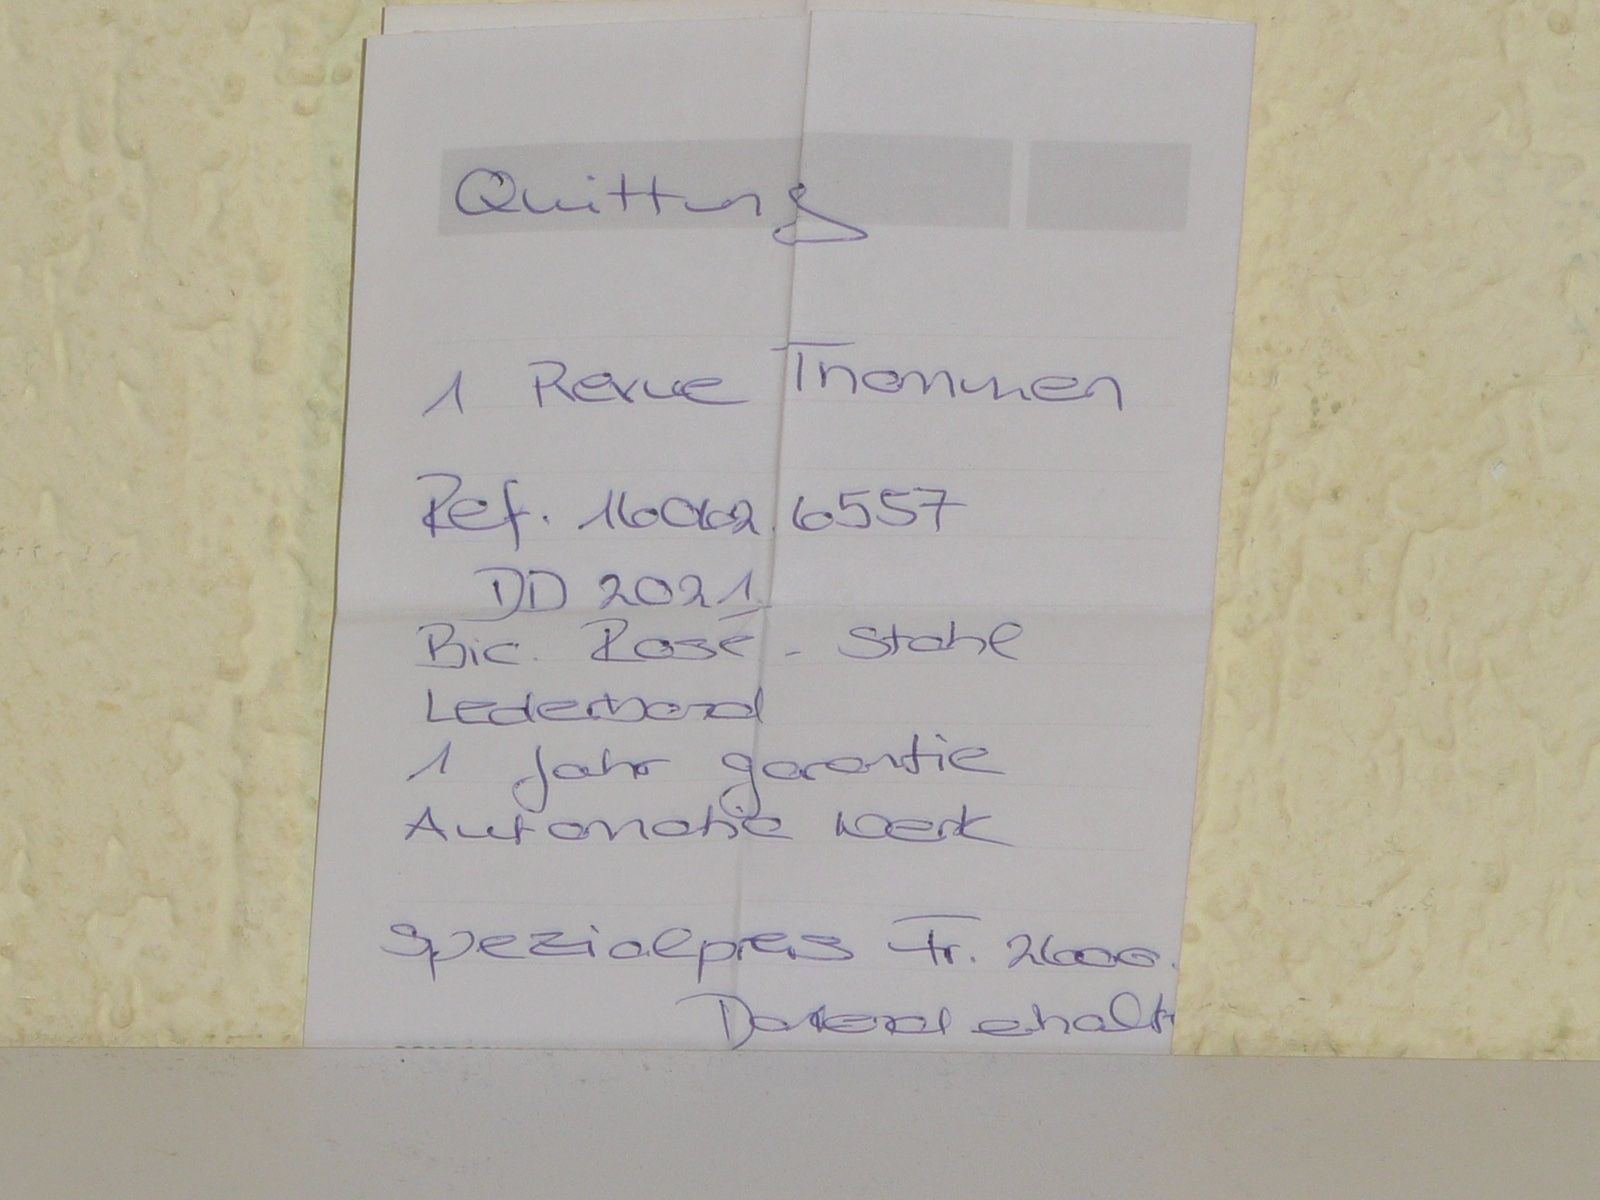 Quittung
1 Revue Thommen
Ref. 16062.6557
DD 2021
Bic. Rosé - Stahl
Lederband
1 Jahr garantie
Automatic Werk
Spezialpreis Fr. 2600.
Dankend erhalt